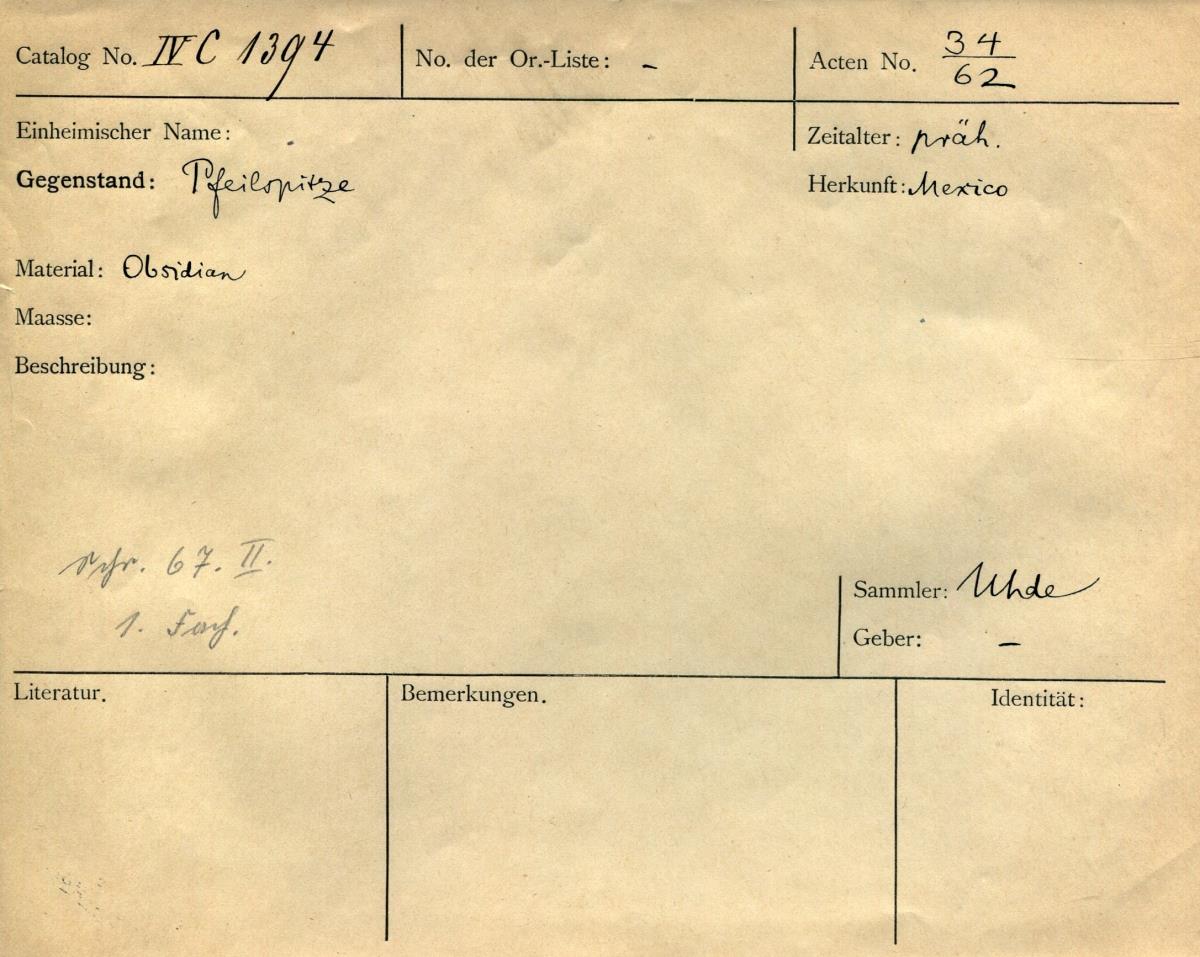 Catalog No. IV C 1394
No. der Or.-Liste: -
Acten No. 34/62
Einheimischer Name:
Zeitalter: präh.
Gegenstand: Pfeilspitze
Herkunft: Mexico
Material: Obsidian
Maasse:
Beschreibung:
Schr. 67. II.
1. Fach.
Sammler: Uhde
Geber: -
Literatur.
Bemerkungen.
Identität: